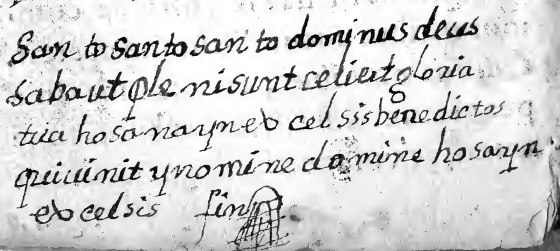 San to santo san to dominus deus
sabaut ple nisunt celi et gloria
tua hosanayn ex cel sis benedictos
quiuinit ynomine domine hosayn
ex celsis fin